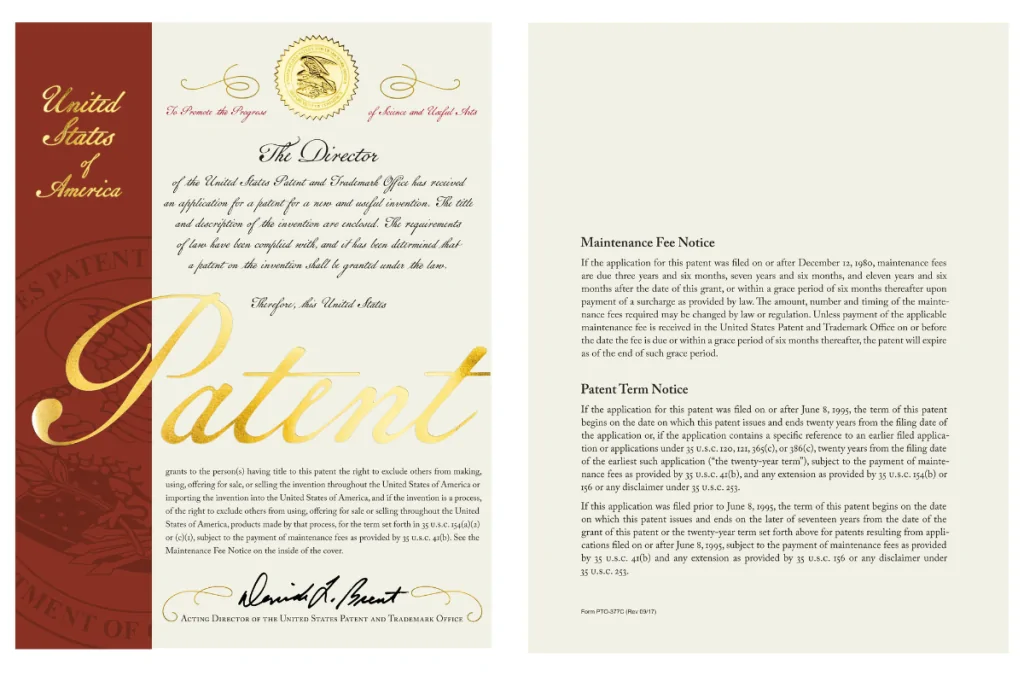 United
States
of
America
To Promote the Progress
of Science and Useful Arts
The Director
of the United States Patent and Trademark Office has received
an application for a patent for a new and useful invention. The title
and description of the invention are enclosed. The requirements
of law have been complied with, and it has been determined that
a patent on the invention shall be granted under the law.
Therefore, this United States
Patent
grants to the person(s) having title to this patent the right to exclude others from making,
using, offering for sale, or selling the invention throughout the United States of America or
importing the invention into the United States of America, and if the invention is a process,
of the right to exclude others from using, offering for sale or selling throughout the United
States of America, products made by that process, for the term set forth in 35 U.S.C. 154(a)(2)
or (c)(1), subject to the payment of maintenance fees as provided by 35 U.S.C. 41(b). See the
Maintenance Fee Notice on the inside of the cover.
Acting Director of the United States Patent and Trademark Office
ES PATENT
MENT OF
Maintenance Fee Notice
If the application for this patent was filed on or after December 12, 1980, maintenance fees
are due three years and six months, seven years and six months, and eleven years and six
months after the date of this grant, or within a grace period of six months thereafter upon
payment of a surcharge as provided by law. The amount, number and timing of the mainte-
nance fees required may be changed by law or regulation. Unless payment of the applicable
maintenance fee is received in the United States Patent and Trademark Office on or before
the date the fee is due or within a grace period of six months thereafter, the patent will expire
as of the end of such grace period.
Patent Term Notice
If the application for this patent was filed on or after June 8, 1995, the term of this patent
begins on the date on which this patent issues and ends twenty years from the filing date of
the application or, if the application contains a specific reference to an earlier filed applica-
tion or applications under 35 U.S.C. 120, 121, 365(c), or 386(c), twenty years from the filing date
of the earliest such application (“the twenty-year term”), subject to the payment of mainte-
nance fees as provided by 35 U.S.C. 41(b), and any extension as provided by 35 U.S.C. 154(b) or
156 or any disclaimer under 35 U.S.C. 253.
If this application was filed prior to June 8, 1995, the term of this patent begins on the date
on which this patent issues and ends on the later of seventeen years from the date of the
grant of this patent or the twenty-year term set forth above for patents resulting from appli-
cations filed on or after June 8, 1995, subject to the payment of maintenance fees as provided
by 35 U.S.C. 41(b) and any extension as provided by 35 U.S.C. 156 or any disclaimer under
35 U.S.C. 253.
Form PTO-377C (Rev 09/17)